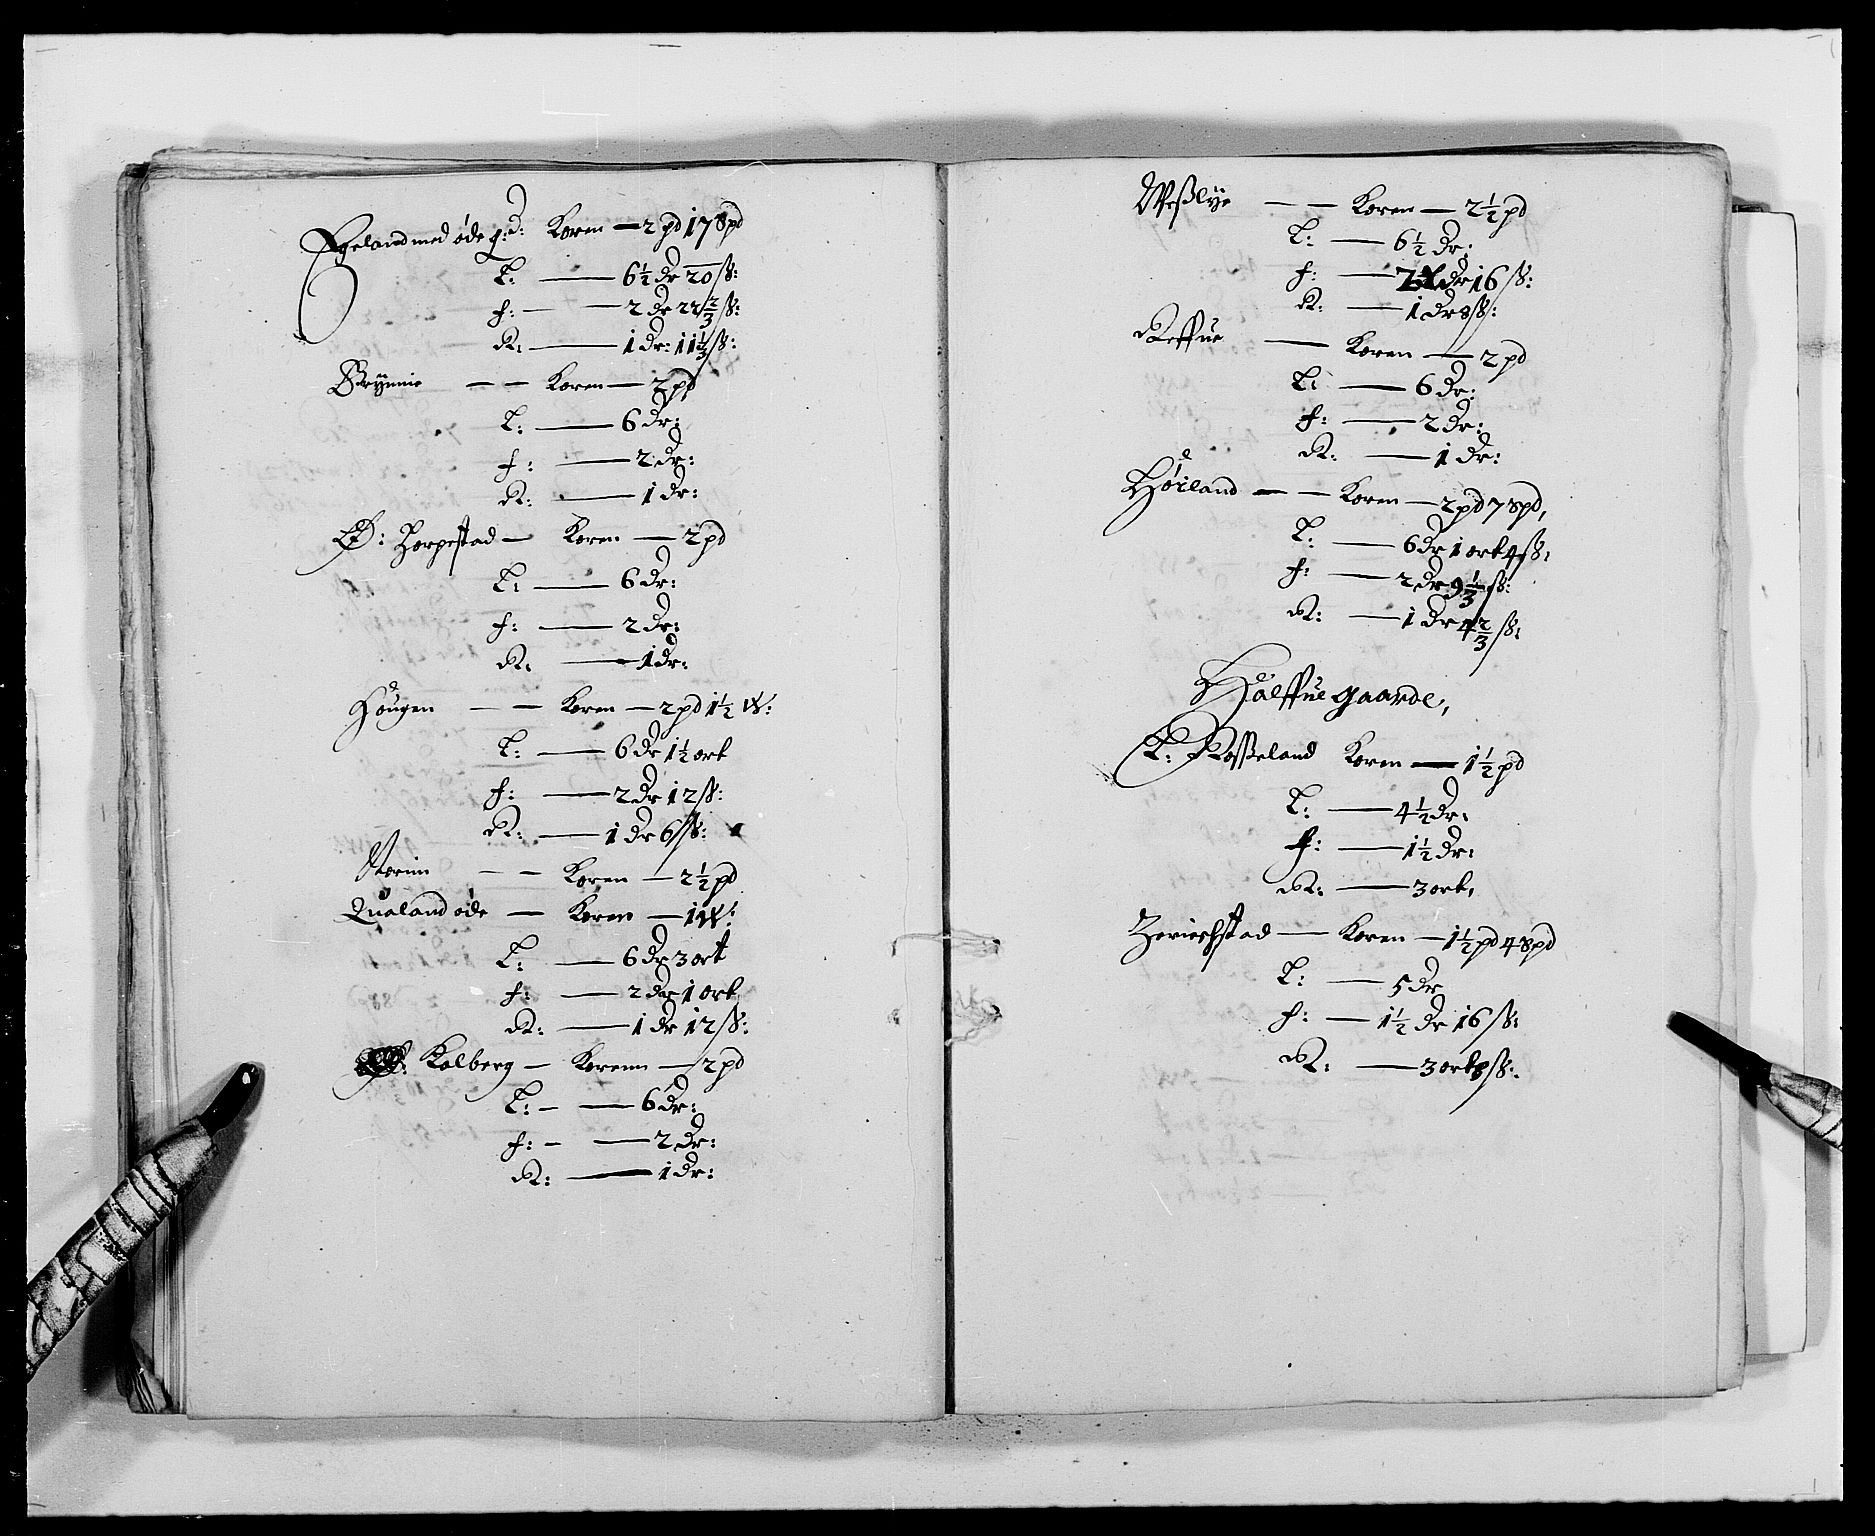 Egeland med øde g:d: Koren — 2 pd 17 8pd
L: — 6½ dr 20 ß:
f: — 2 dr 22⅔ ß:
R: — 1 dr: 11⅓ ß:
Brynnie — — Koren — 2 pd
L: — 6 dr:
f: — 2 dr:
R: — 1 dr:
Ø: Horpestad — Koren — 2 pd
L: — 6 dr:
f: — 2 dr:
R: — 1 dr:
Hougen — — Koren — 2 pd 1½ W:
L: — 6 dr 1½ ort
f: — 2 dr 12 ß:
R: — 1 dr 6 ß:
Norim — — Koren — 2½ pd
Qualand øde — Koren — 1 W:
L: — 6 dr 3 ort
f: — 2 dr 1 ort
R: — 1 dr 12 ß:
Kalberg — Korenn — 2 pd
L: — — 6 dr:
f: — — 2 dr:
R: — 1 dr:
Weßlye — — Koren — 2½ pd
L: — 6½ dr:
f: — dr 16 ß:
R: — 1 dr 8 ß:
Reffue — Koren — 2 pd
L: — 6 dr:
f: — 2 dr:
R: — 1 dr:
Høiland — — Koren — 2 pd 7 8pd,
L: — 6 dr 1 ort 4 ß:
f: — 2 dr 9⅓ ß:
R: — 1 dr 4⅔ ß:
Halffue gaarde,
L: Roßeland Koren — 1½ pd
L: — 4½ dr:
f: — 1½ dr:
R: — 3 ort,
Herichstad — Koren — 1½ pd 4 8pd
L: — 5 dr
f: — 1½ dr 16 ß:
R: — 3 ort 8 ß: